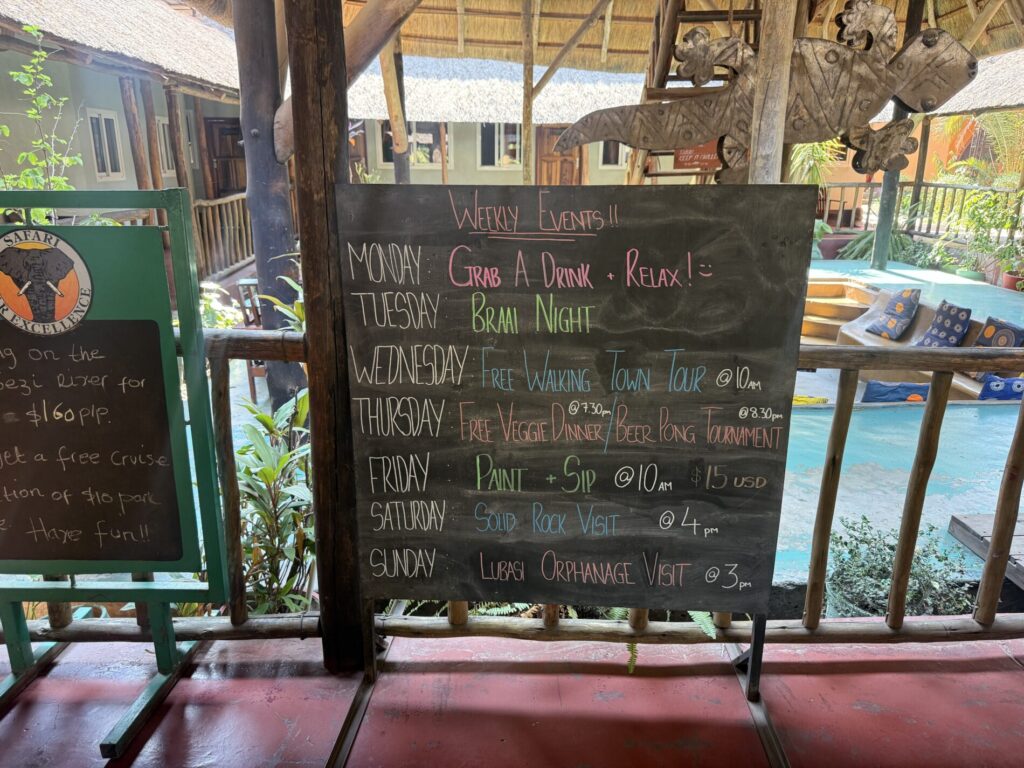 SAFARI
EXCELLENCE
on the
River for
$160plp.
get a free Cruise
of $10 park
Have fun!!
WEEKLY EVENTS!!
MONDAY: GRAB A DRINK + RELAX!
TUESDAY: BRAAI NIGHT
WEDNESDAY: FREE WALKING TOWN TOUR @10AM
@7.30pm @8.30pm
THURSDAY: FREE VEGGIE DINNER/BEER PONG TOURNAMENT
FRIDAY: PAINT + SIP @10AM $15 USD
SATURDAY: SOLID ROCK VISIT @4pm
SUNDAY: LUBASI ORPHANAGE VISIT @3pm